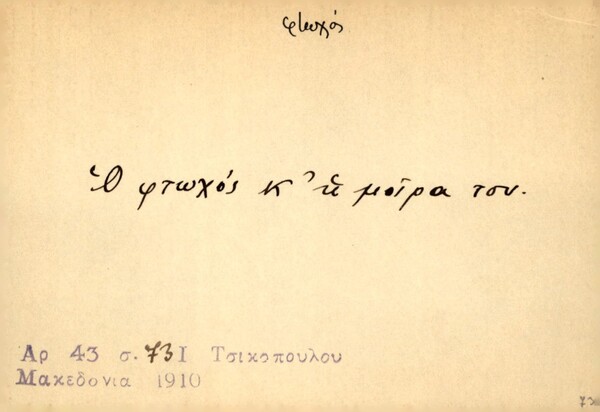 φτωχός
Ὁ φτωχός κ' ἡ μοῖρα του.
Αρ 43 σ. 73 Ι Τσικοπουλου
Μακεδονια 1910